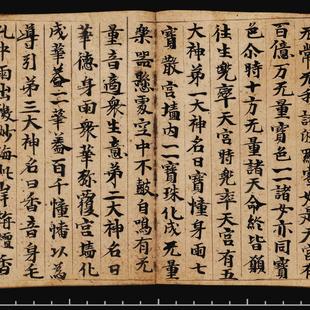 无常无我諸波羅蜜如是天宮有
百億万无量寶色一一諸女亦同寶
色尒時十方无量諸天命終皆願
往生兜率天宮時兜率天宮有五
大神第一大神名曰寶幢身雨七
寶散宮墻內一一寶珠化成无量
樂器懸處空中不皷自鳴有无
量音適衆生意第二大神名曰
華德身雨衆華弥覆宮墻化
成華盖一一華盖百千幢幡以為
導引第三大神名曰香音身毛
孔中雨出微妙海此岸栴檀香